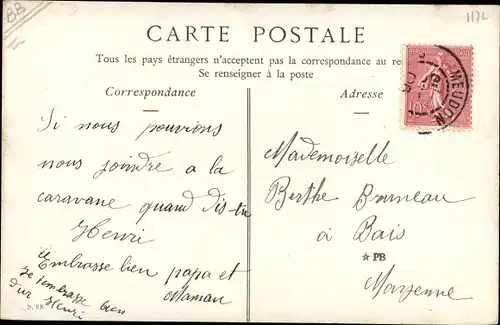 BB
117L
CARTE POSTALE
Tous les pays étrangers n'acceptent pas la correspondance au re
Se renseigner à la poste
Correspondance
Adresse
MEUDON
10c
Si nous pouvions
nous joindre a la
caravane quand dis-tu
Henri
Embrasse bien papa et
Maman
Je t'embrasse bien
Henri
S. 88
Mademoiselle
Berthe Bruneau
à Bais
★ PB
Mayenne